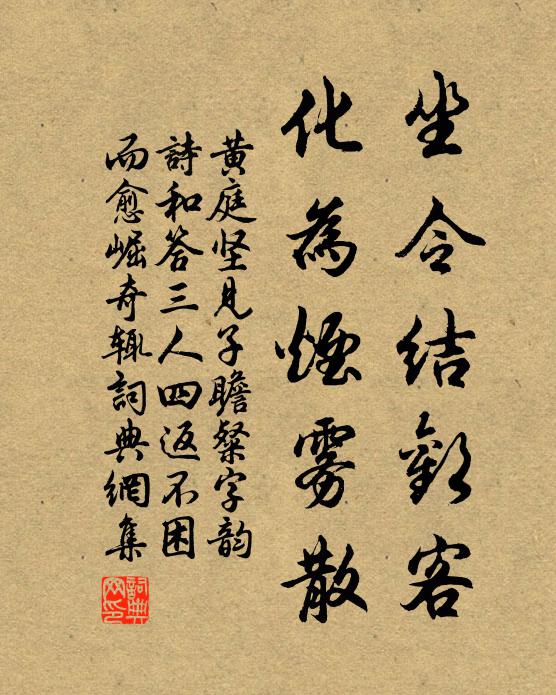 坐令結歡客
化為煙雾散
黄庭坚見子瞻粲字韵
詩和答三人四返不困
而愈崛奇辄詞典網集
詞典
网印